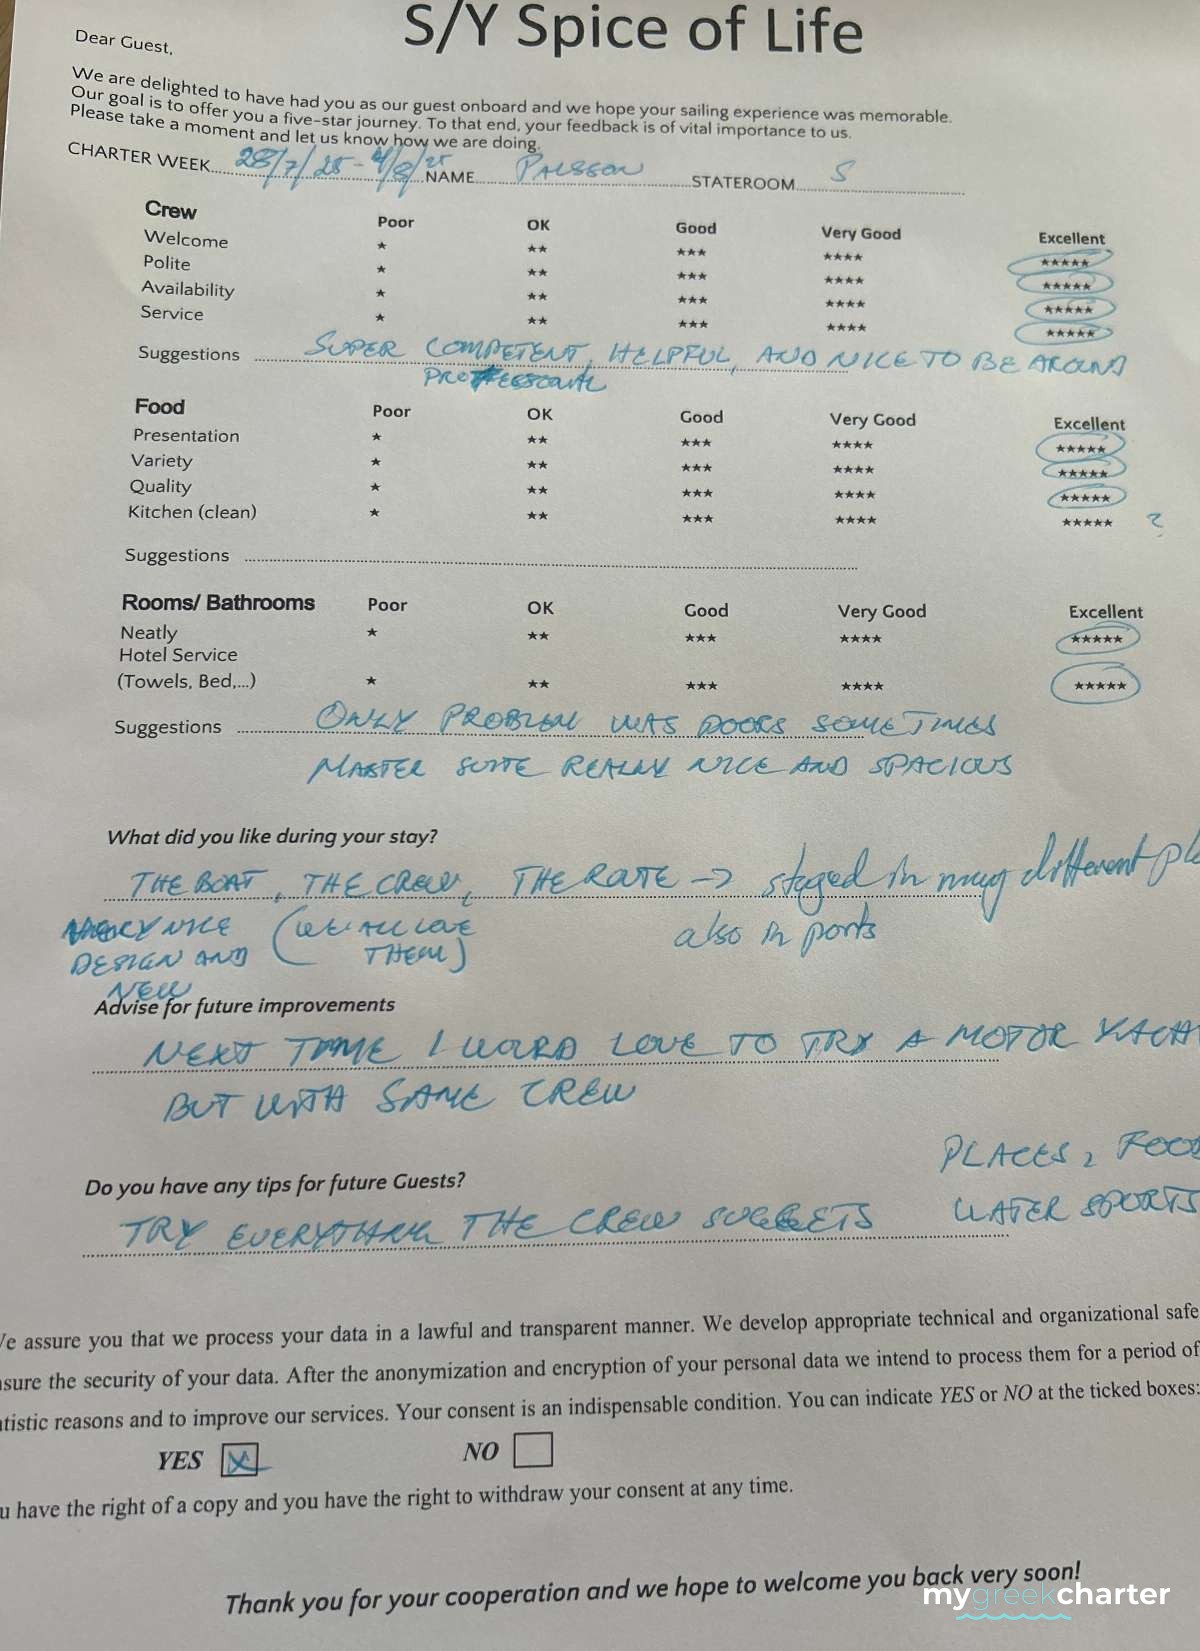 S/Y Spice of Life
Dear Guest,
We are delighted to have had you as our guest onboard and we hope your sailing experience was memorable.
Our goal is to offer you a five-star journey. To that end, your feedback is of vital importance to us.
Please take a moment and let us know how we are doing.
CHARTER WEEK 28/7/25 - 4/8/25 NAME PALSSON STATEROOM 5
Crew Poor OK Good Very Good Excellent
Welcome * ** *** **** *****
Polite * ** *** **** *****
Availability * ** *** **** *****
Service * ** *** **** *****
Suggestions SUPER COMPETENT, HELPFUL, AND NICE TO BE AROUND
Food Poor OK Good Very Good Excellent
Presentation * ** *** **** *****
Variety * ** *** **** *****
Quality * ** *** **** *****
Kitchen (clean) * ** *** **** ***** ?
Suggestions
Rooms/ Bathrooms Poor OK Good Very Good Excellent
Neatly * ** *** **** *****
Hotel Service
(Towels, Bed,...) * ** *** **** *****
Suggestions ONLY PROBLEM WAS DOORS SOMETIMES
MASTER SUITE REALLY NICE AND SPACIOUS
What did you like during your stay?
THE BOAT, THE CREW, THE ROUTE → stayed in many different pl
NICE (WE ALL LOVE also in ports
DESIGN AND THEM)
NEW
Advise for future improvements
NEXT TIME I WOULD LOVE TO TRY A MOTOR YACH
BUT WITH SAME CREW
PLACES, FOOD
Do you have any tips for future Guests?
TRY EVERYTHING THE CREW SUGGETS WATER SPORTS
We assure you that we process your data in a lawful and transparent manner. We develop appropriate technical and organizational safe
nsure the security of your data. After the anonymization and encryption of your personal data we intend to process them for a period of
atistic reasons and to improve our services. Your consent is an indispensable condition. You can indicate YES or NO at the ticked boxes:
YES X NO
u have the right of a copy and you have the right to withdraw your consent at any time.
Thank you for your cooperation and we hope to welcome you back very soon!
mygreekcharter